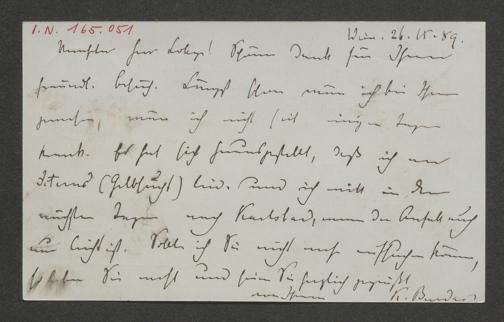 I.N. 165.051
Wien. 26. IX. 89.
Schönen Dank für Ihren
freundl. Besuch. Längst schon wäre ich bei Ihnen
gewesen, wäre ich nicht seit einigen Tagen
krank. Es hat sich herausgestellt, daß ich an
Icterus (Gelbsucht) leide und ich muß in den
nächsten Tagen nach Karlsbad, wenn der Anfall auch
nur leicht ist. Sollte ich Sie nicht mehr aufsuchen können,
so leben Sie wohl und seien Sie herzlich gegrüßt
von Ihrem